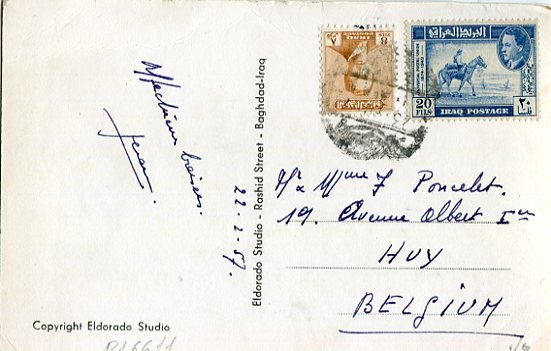 Affectueux baisers.
Jean.
22-2-57.
Eldorado Studio - Rashid Street - Baghdad-Iraq
Copyright Eldorado Studio
R16611
8
IRAQ
البريد العراقية
20
FILS
IRAQ POSTAGE
٢٠
Mr & Mme J Poncelet.
19. Avenue Albert Ier
HUY
BELGIUM